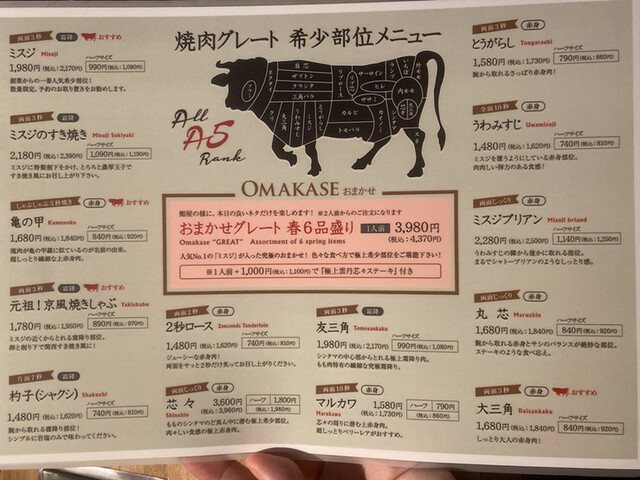 焼肉グレート 希少部位メニュー
All
A5
Rank
両面3秒 霜降 おすすめ
ミスジ Misuji
ハーフサイズ
1,980円(税込:2,170円) 990円(税込:1,080円)
創業からの一番人気希少部位!
数量限定。予約のお取り置きをお勧めします。
両面3秒 霜降
ミスジのすき焼き Misuji Sukiyaki
ハーフサイズ
2,180円(税込:2,390円) 1,090円(税込:1,190円)
ミスジに特製割下をかけ、とろっと濃厚玉子で
すき焼き風にお召し上がり下さい。
しゃぶしゃぶ3秒焼き 赤身 おすすめ
亀の甲 Kamenoko
ハーフサイズ
1,680円(税込:1,840円) 840円(税込:920円)
焼肉が亀の甲羅に似ているのが名前の由来。
超しっとり繊細な上赤身肉。
両面3秒 霜降
元祖!京風焼きしゃぶ Yakishabu
ハーフサイズ
1,780円(税込:1,950円) 890円(税込:970円)
ミスジの近くからとれる霜降り部位。
卵と割り下で関西すき焼き風に!
片面7秒 霜降
杓子(シャクシ) Shakushi
ハーフサイズ
1,480円(税込:1,620円) 740円(税込:810円)
腕から取れる霜降り部位!
シンプルに岩塩のみで味わってください。
OMAKASE おまかせ
鮨屋の様に、本日の良いネタだけを楽しめます! ※2人前からのご注文になります
おまかせグレート 春6品盛り 1人前 3,980円
Omakase "GREAT" Assortment of 6 spring items (税込:4,370円)
人気No.1の「ミスジ」が入った究極のおまかせ! 色々な食べ方で極上希少部位をご堪能下さい!
※1人前+1,000円(税込:1,100円)で「極上雲丹芯々ステーキ」付き
両面2秒 赤身
2秒ロース 2seconds Tenderloin
ハーフサイズ
1,480円(税込:1,620円) 740円(税込:810円)
ジューシーな赤身肉!
両面をサッと2秒だけ炙ってお召し上がりください。
両面じっくり 赤身
芯々 Shinshin
3,600円(税込:3,960円) ハーフ 1,800円(税込:1,980円)
もものシンタマのど真ん中に潜む極上希少部位。
肉々しい食感の極上赤身肉。
両面3秒 霜降
友三角 Tomosankaku
ハーフサイズ
1,980円(税込:2,170円) 990円(税込:1,080円)
シンタマの中心部からとれる極上霜降り肉。
もも肉特有の繊細な究極霜降り。
両面10秒 赤身
マルカワ Marukawa
1,580円(税込:1,730円) ハーフ 790円(税込:860円)
芯々の周りに潜む上赤身。
超しっとりベリーレアがおすすめ。
両面3秒 赤身
とうがらし Tougarashi
ハーフサイズ
1,580円(税込:1,730円) 790円(税込:860円)
腕から取れるさっぱり赤身肉!
全面10秒 赤身
うわみすじ Uwamisuji
ハーフサイズ
1,480円(税込:1,620円) 740円(税込:810円)
ミスジを覆うようにしている赤身部位。
肉肉しい弾力のある食感!
両面じっくり 赤身
ミスジブリアン Misuji briand
ハーフサイズ
2,280円(税込:2,500円) 1,140円(税込:1,250円)
うわみすじの隣から僅かに取れる部位。
まるでシャトーブリアンのようなしっとり感。
両面じっくり 赤身
丸 芯 Marushin
ハーフサイズ
1,680円(税込:1,840円) 840円(税込:920円)
腕から取れる赤身とサシのバランスが絶妙な部位。
ステーキのような食べ応え。
両面3秒 赤身 おすすめ
大三角 Daisankaku
ハーフサイズ
1,680円(税込:1,840円) 840円(税込:920円)
しっとり大人の赤身肉!
ザブトン
クラシタ
三角バラ
リブロース
サーロイン
ヒレ
カルビ
ササミ
トモバラ